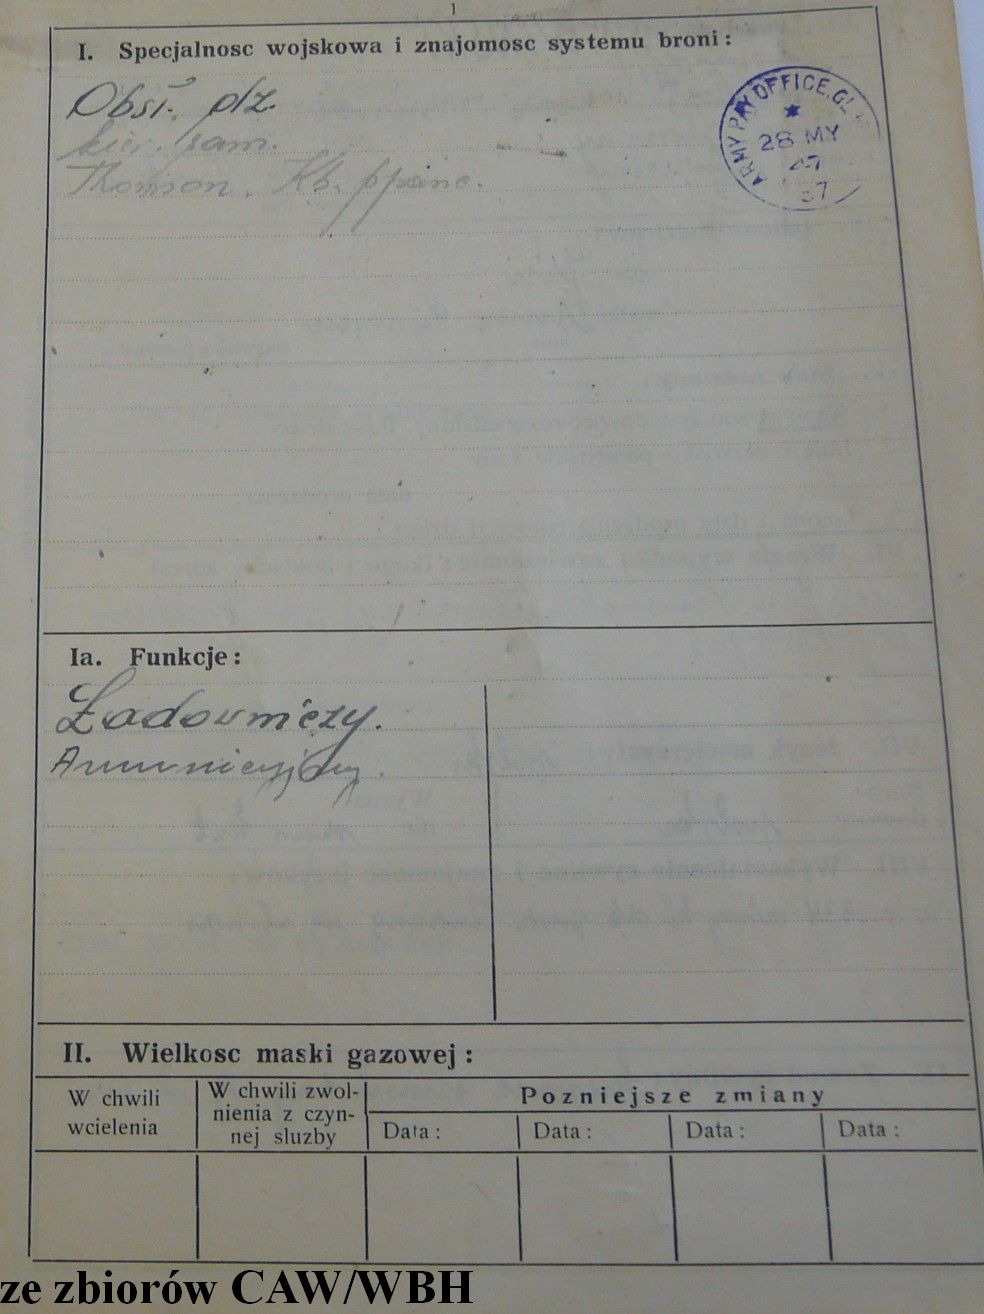 1
I. Specjalnosc wojskowa i znajomosc systemu broni :
Obsł. dz.
kier. sam.
Thomson. Kb. ppanc.
ARMY PAY OFFICE. GL
28 MY
47
57
Ia. Funkcje :
Ładowniczy.
Amunicyjny.
II. Wielkosc maski gazowej :
W chwili wcielenia
W chwili zwol-
nienia z czyn-
nej sluzby
Pozniejsze zmiany
Data : Data : Data : Data :
ze zbiorów CAW/WBH